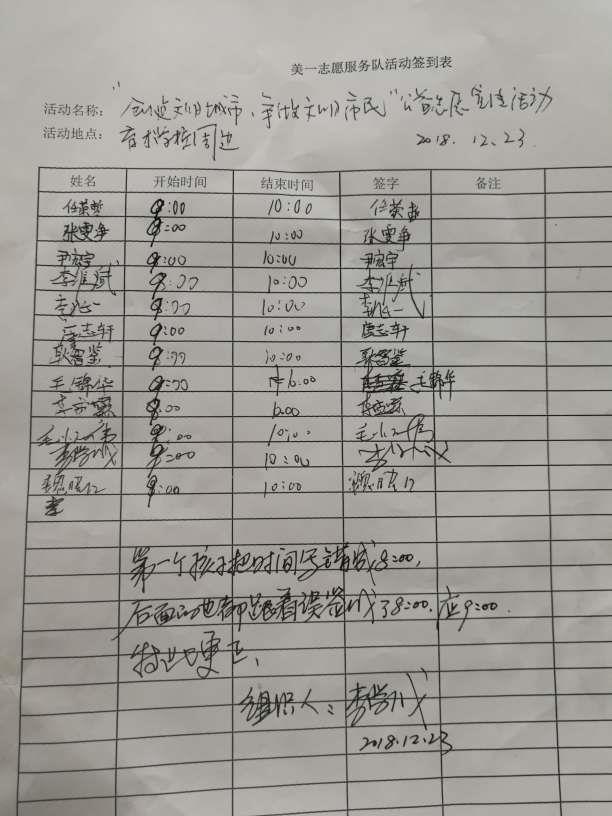 美一志愿服务队活动签到表
活动名称："创建文明城市、争做文明市民"公益志愿宣传活动
活动地点： 育才学校周边 2018.12.23
姓名 开始时间 结束时间 签字 备注
任荣哲 9:00 10:00 任荣哲
张雯争 9:00 10:00 张雯争
尹宏宇 9:00 10:00 尹宏宇
李淮斌 9:00 10:00 李淮斌
9:00 10:00
唐志轩 9:00 10:00 唐志轩
耿智鉴 9:00 10:00 耿智鉴
王锦华 9:00 10:00 王锦华
9:00 10:00
9:00 10:00
李学成 9:00 10:00 李学成
9:00 10:00
第一个孩子把时间写错成8:00,
后面的也都跟着误签成了8:00.应9:00.
特此更正、
组织人：李学成
2018.12.23